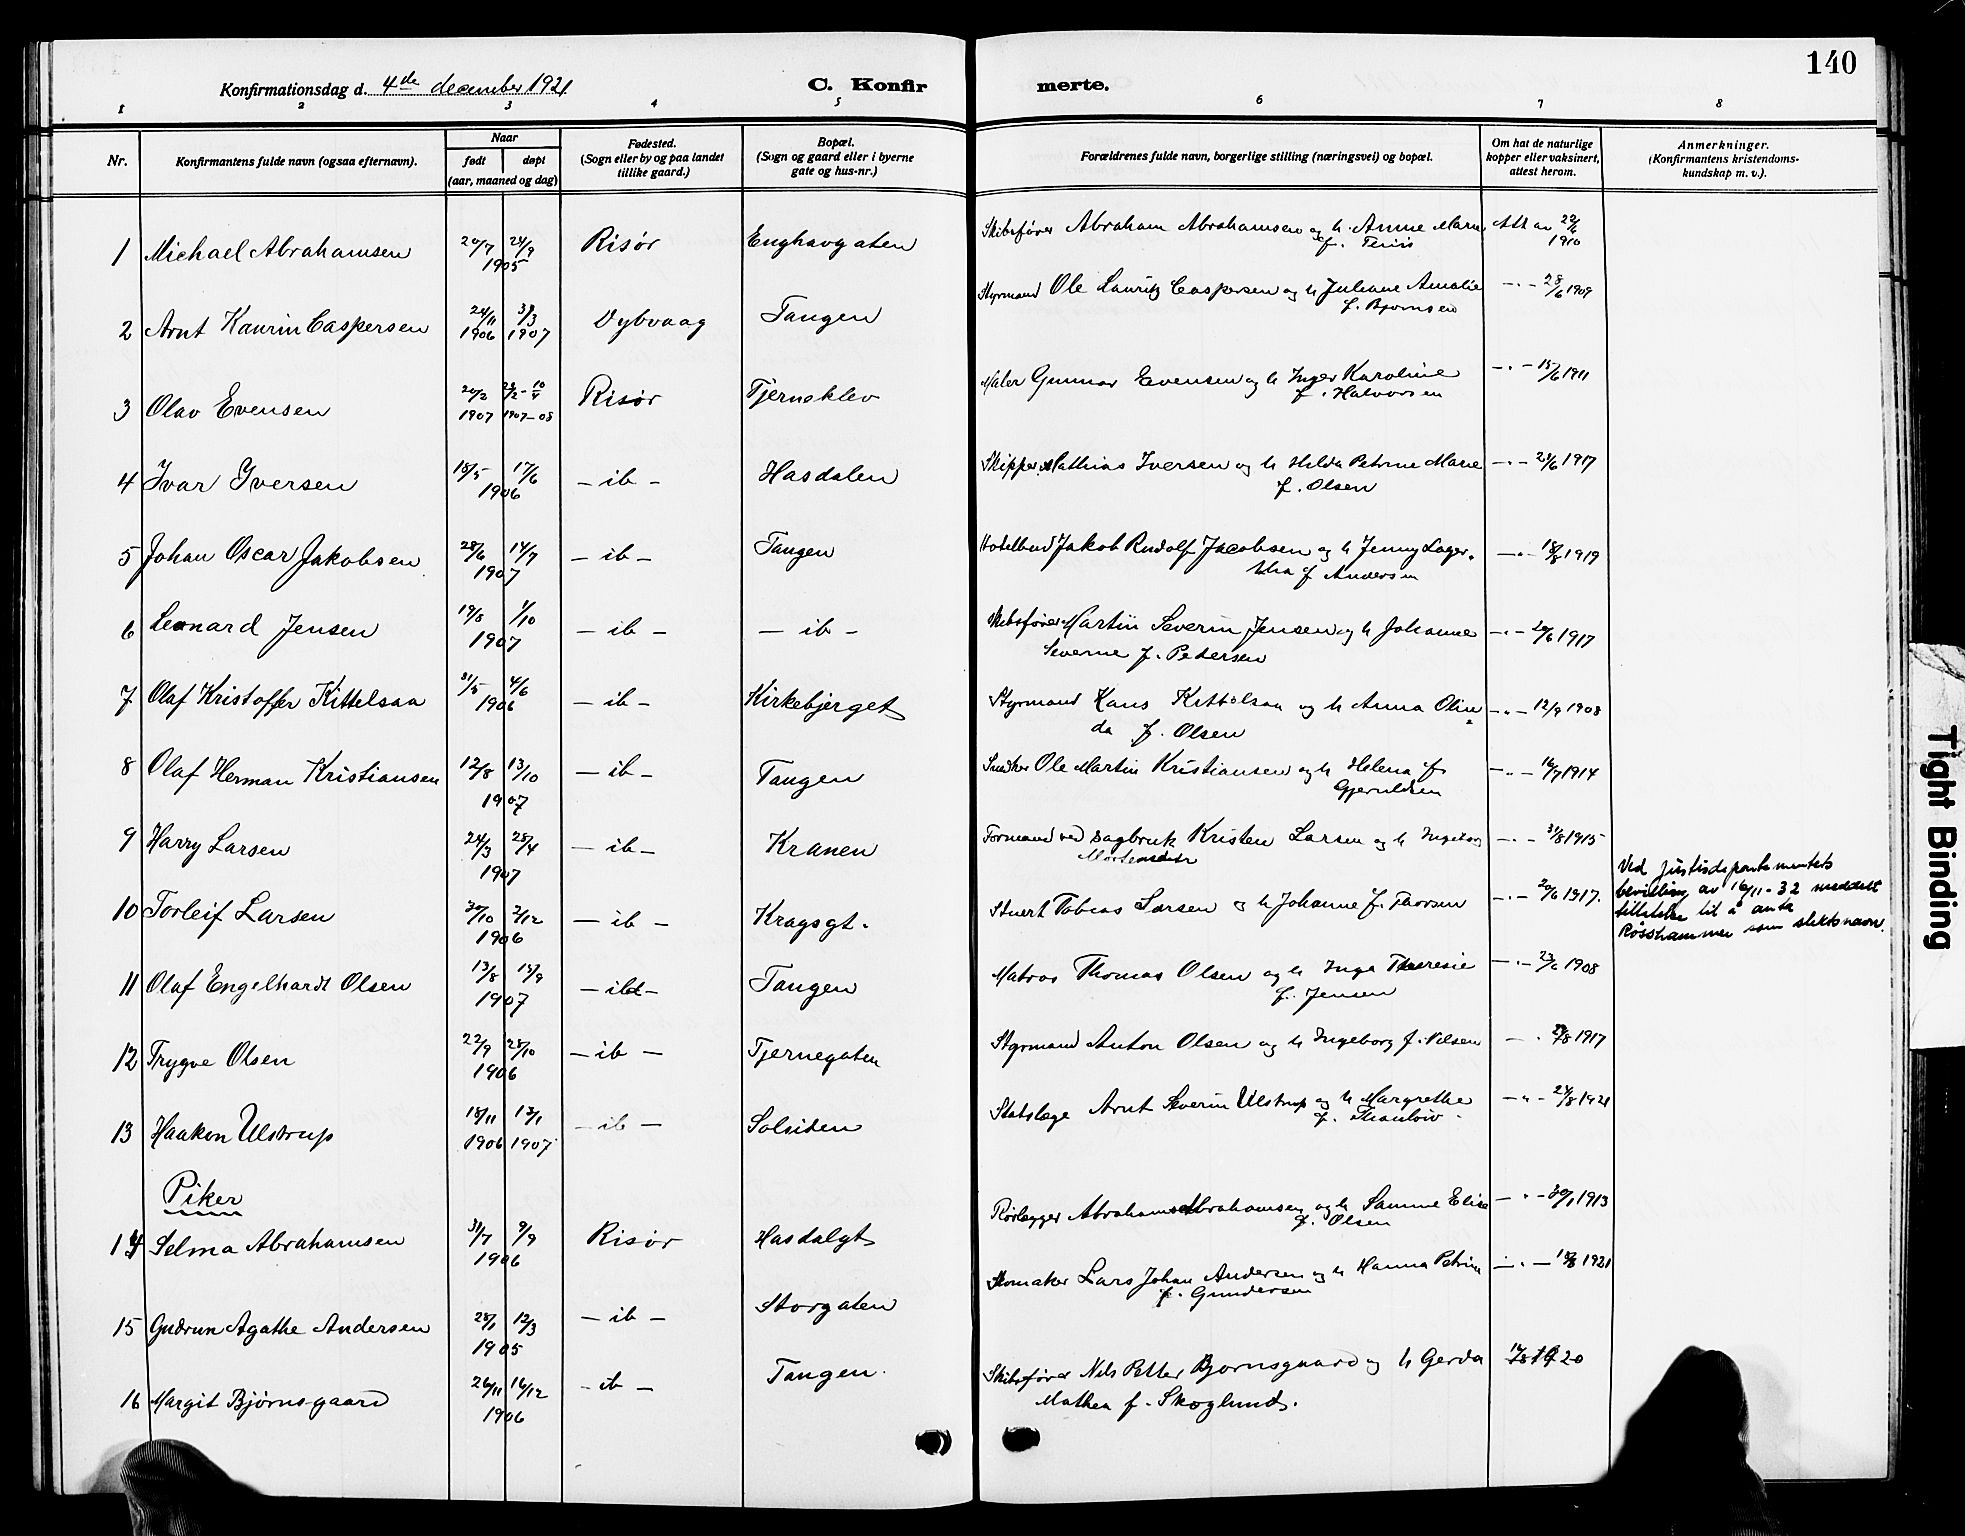 140
Konfirmationsdag d. 4de december 1921 C. Konfirmerte.
1 2 3 4 5 6 7 8
Nr. Konfirmantens fulde navn (ogsaa efternavn). Naar født døpt (aar, maaned og dag) Fødested. (Sogn eller by og paa landet tillike gaard.) Bopæl. (Sogn og gaard eller i byerne gate og hus-nr.) Forældrenes fulde navn, borgerlige stilling (næringsvei) og bopæl. Om hat de naturlige kopper eller vaksinert, attest herom. Anmerkninger. (Konfirmantens kristendomskundskap m. v.).
1 Michael Abrahamsen 20/7 24/9 1905 Risør Enghavgaten Skibsfører Abraham Abrahamsen og h. Anne Marie f. Att av 1910
2 Arnt Kaurin Caspersen 24/11 1906 3/3 1907 Dybvaag Tangen Styrmand Ole Lauritz Caspersen og h Juliane Amalie f. Bjørnsen -"- 28/6 1909
3 Olav Evensen 20/2 1907 1907-08 Risør Tjerneklev Maler Gunnar Evensen og h Inger Karoline f. Halvorsen -"- 15/6 1911
4 Ivar Iversen 18/5 17/6 1906 - ib - Hasdalen Skipper Mathias Iversen og h Hilda Petrine Marie f. Olsen -"- 21/6 1917
5 Johan Oscar Jakobsen 28/6 14/7 1907 - ib - Tangen Hotelbud Jakob Rudolf Jacobsen og h Jenny Lagertha f Andersen -"- 18/8 1919
6 Leonard Jensen 19/8 1/10 1907 - ib - - ib - Skibsfører Martin Severin Jensen og h Johanne Severine f. Pedersen -"- 20/6 1917
7 Olaf Kristoffer Kittelsaa 31/5 4/6 1906 - ib - Kirkebjerget Styrmand Hans Kittelsaa og h Anna Olinda f. Olsen -"- 12/9 1908
8 Olaf Herman Kristiansen 12/8 13/10 1907 - ib - Tangen Snedker Ole Martin Kristiansen og h Helena f. Gjeruldsen -"- 16/7 1914
9 Harry Larsen 24/3 28/4 1907 - ib - Kranen Formand ved sagbruk Kristen Larsen og h Ingeborg -"- 31/8 1915
10 Torleif Larsen 30/10 2/12 1906 - ib - Kragsgt. Stuert Tobias Larsen og h Johanne f. Thorsen -"- 20/6 1917.
Ved justisdepartementets
bevilling av 16/11-32 meddelt
tillatelse til å anta
Røsshammer som slektsnavn.
11 Olaf Engelhardt Olsen 13/8 15/9 1907 - ib - Tangen Matros Thomas Olsen og h Inga Theresie f. Jensen -"- 23/6 1908
12 Trygve Olsen 22/9 28/10 1906 - ib - Tjernegaten Styrmand Anton Olsen og h Ingeborg f. Nilsen -"- 1917
13 Haakon Ulstrup 18/11 1906 13/1 1907 - ib - Solsiden Statslæge Arnt Severin Ulstrup og h Margrethe f. Thaulow -"- 24/8 1921
Piker
14 Selma Abrahamsen 31/7 9/9 1906 Risør Hasdalgt Rørlægger Abraham Abrahamsen og h Samine Elise f. Olsen -"- 1913
15 Gudrun Agathe Andersen 28/1 12/3 1905 - ib - Storgaten Skomaker Lars Johan Andersen og h Hanna Petrine f. Gundersen -"- 18/8 1921
16 Margit Bjørnsgaard 26/11 16/12 1906 - ib - Tangen. Skibsfører Nils Petter Bjørnsgaard og h Gerda Mathea f. Skoglund. 17/8 1920
Tight Binding